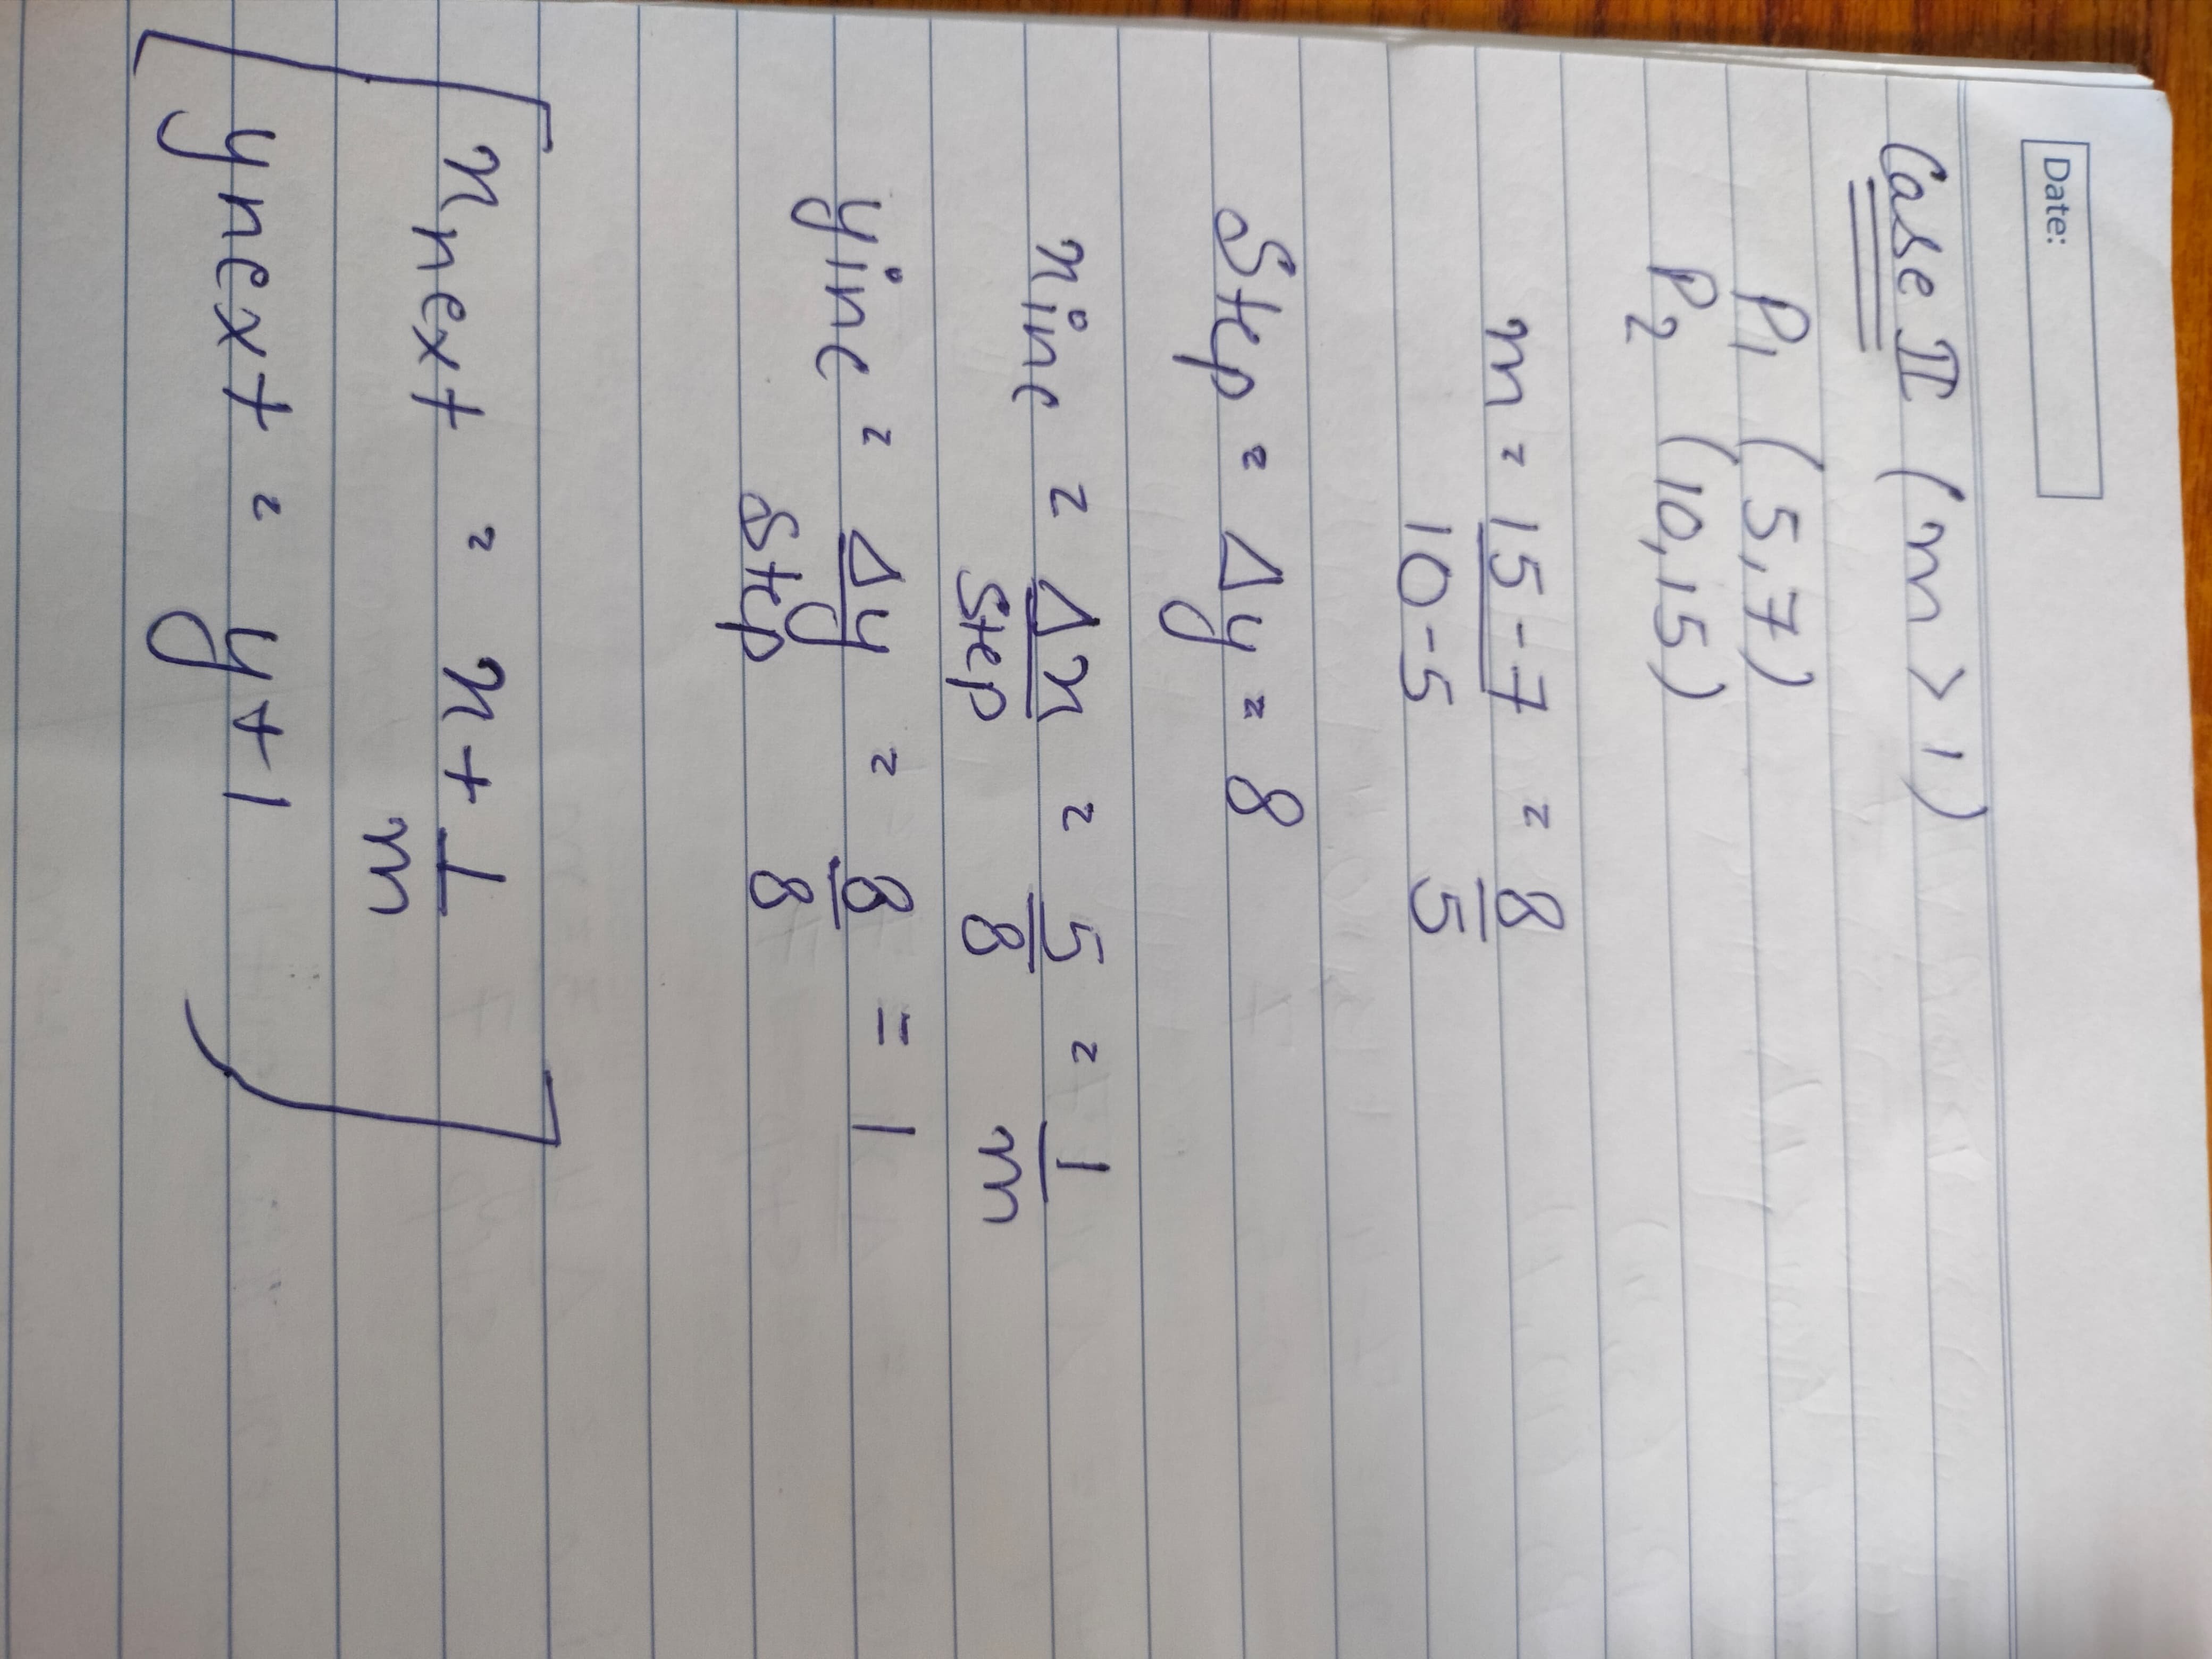 Date:
Case II (m > 1)
P1 (5,7)
P2 (10,15)
m = 15-7 / 10-5 = 8/5
Step = Δy = 8
xinc = Δx/Step = 5/8 = 1/m
yinc = Δy/Step = 8/8 = 1
xnext = x + 1/m
ynext = y + 1